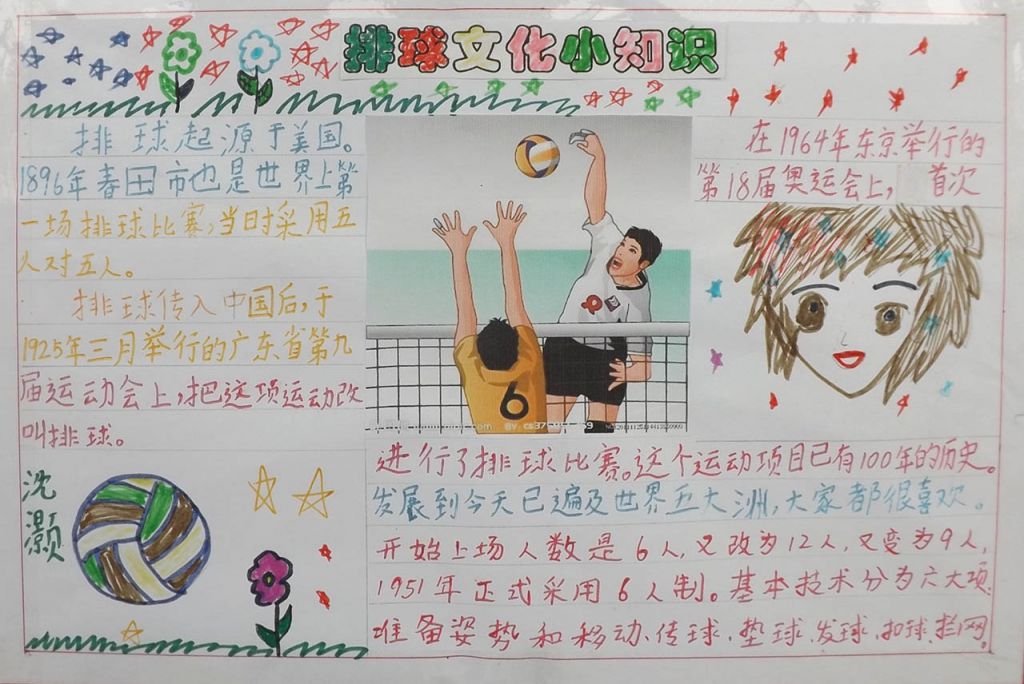 排球文化小知识
排球起源于美国。
1896年春田市也是世界上第
一场排球比赛,当时采用五
人对五人。
排球传入中国后,于
1925年三月举行的广东省第九
届运动会上,把这项运动改
叫排球。
沈
灏
6
在1964年东京举行的
第18届奥运会上, 首次
进行了排球比赛。这个运动项目已有100年的历史。
发展到今天已遍及世界五大洲,大家都很喜欢。
开始上场人数是6人,又改为12人,又变为9人,
1951年正式采用6人制。基本技术分为六大项
准备姿势和移动、传球、垫球、发球、扣球、拦网。